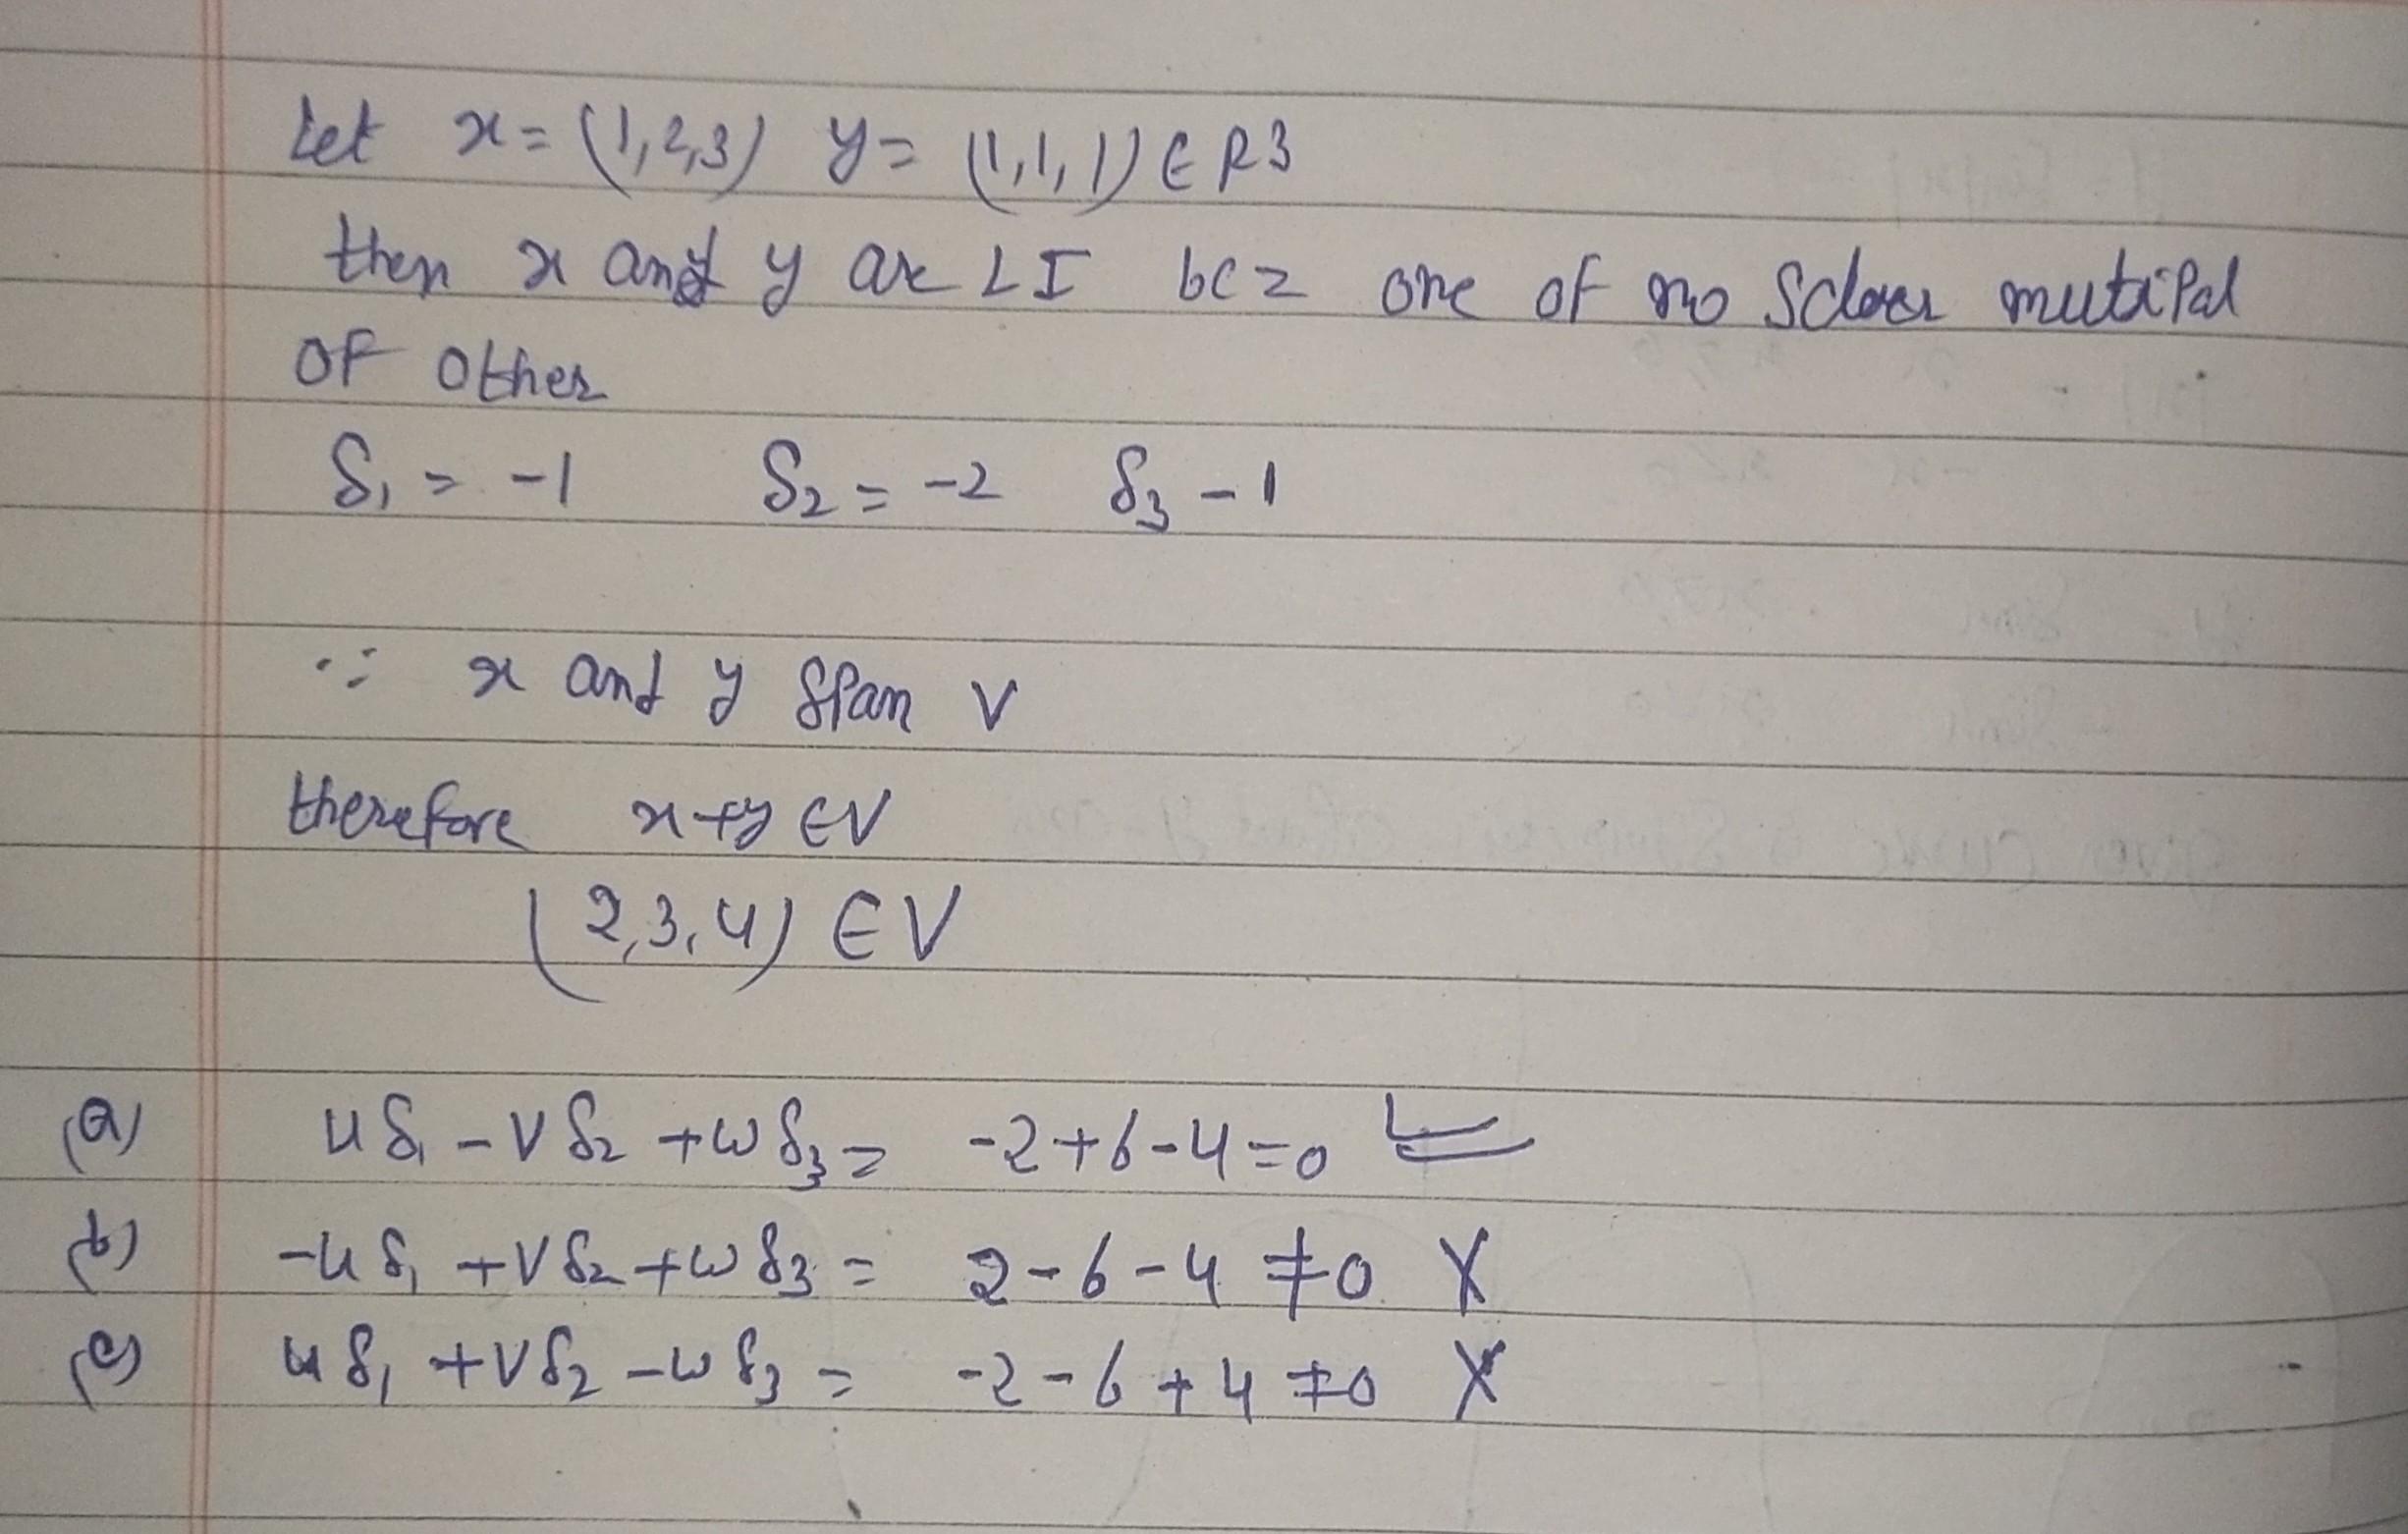 Let x = (1,2,3) y = (1,1,1) ∈ R3
then x and y are LI bcz one of no Scler mutipal
of other
δ₁ = -1 δ₂ = -2 δ₃ - 1
∵ x and y span V
therefore x+y ∈ V
(2,3,4) ∈ V
(a) uδ₁ - vδ₂ + wδ₃ = -2+6-4=0
(b) -uδ₁ + vδ₂ + wδ₃ = 2-6-4 ≠0 X
(c) uδ₁ + vδ₂ - wδ₃ = -2-6+4 ≠0 X